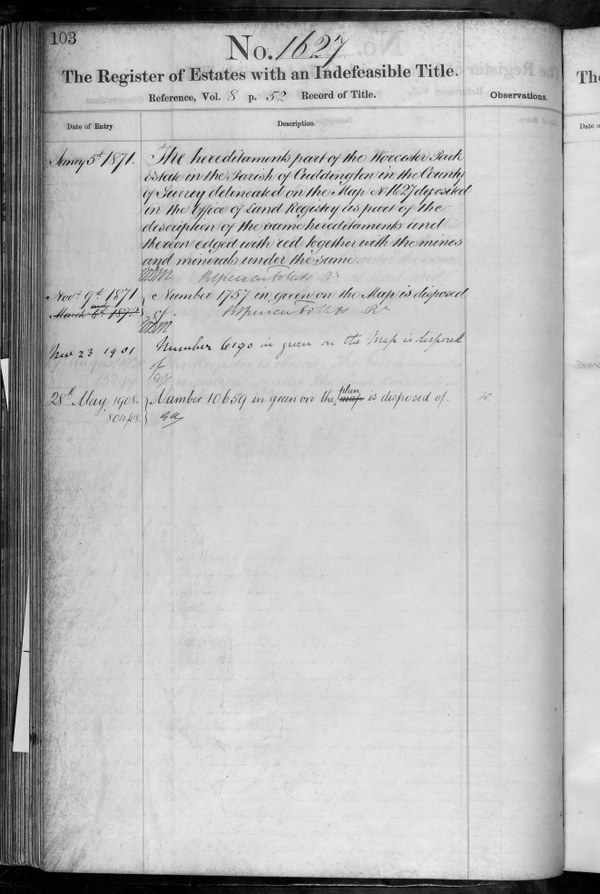 103
No. 1627
The Register of Estates with an Indefeasible Title.
Reference, Vol. 8 p. 52 Record of Title.
Observations.
Date of Entry
Description.
5th 1871.
The hereditaments part of the Worcester Park
Estate in the Parish of Cuddington in the County
of Surrey delineated on the Map No 1627 deposited
in the Office of Land Registry as part of the
description of the same hereditaments and
thereon edged with red together with the mines
and minerals under the same.
Novr 9th 1871
Number 1757 in green on the Map is disposed
of.
March 6th 1872
Nov 23 1901
Number 6190 in green on the Map is disposed
of
28th May 1908.
Number 10659 in green on the map plan is disposed of.
The
Date o